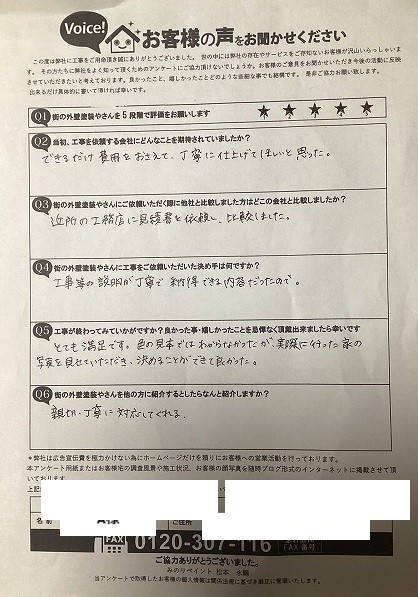 Voice!
お客様の声をお聞かせください
この度は弊社に工事をご用命頂き誠にありがとうございます。世の中には弊社の存在やサービスをご存知ないお客様が沢山いらっしゃいま
す。その方たちに弊社をよく知って頂くためのアンケートにご協力頂けないでしょうか。お客様のご意見をお聞かせいただき今後の活動に反映
させていきたいと考えております。良かったこと、嬉しかったことどのような些細な事でも結構です。是非ご協力お願い致します。
出来るだけ具体的に書いて頂ければ幸いです。
Q1 街の外壁塗装やさんを5段階で評価をお願いします ★ ★ ★ ★ ★
Q2 当初、工事を依頼する会社にどんなことを期待されていましたか?
できるだけ費用をおさえて、丁寧に仕上げてほしいと思った。
Q3 街の外壁塗装やさんにご依頼いただく際に他社と比較しました方はどこの会社と比較しましたか?
近所の工務店に見積書を依頼し、比較しました。
Q4 街の外壁塗装やさんに工事をご依頼いただいた決め手は何ですか?
工事等の説明が丁寧で納得できる内容だったので。
Q5 工事が終わってみていかがですか?良かった事・嬉しかったことを忌憚なく頂戴出来ましたら幸いです
とても満足です。色の見本ではわからなかったが、実際に行った家の
写真を見せていただき、決めることができて良かった。
Q6 街の外壁塗装やさんを他の方に紹介するとしたらなんと紹介しますか?
親切・丁寧に対応してくれる。
*弊社は広告宣伝費を極力かけない為にホームページだけを頼りにお客様への営業活動を行っております。
本アンケート用紙またはお客様宅の調査風景や施工状況、お客様の顔写真を随時ブログ形式のインターネットに掲載させて頂
いております。
上記
名前
A様
ご住所
FAX 0120-307-116
FAX番号
ご協力ありがとうございました。
みのリペイント 松本 永輔
当アンケートで取得したお客様の個人情報は関係法規に基づき厳正に管理いたします。